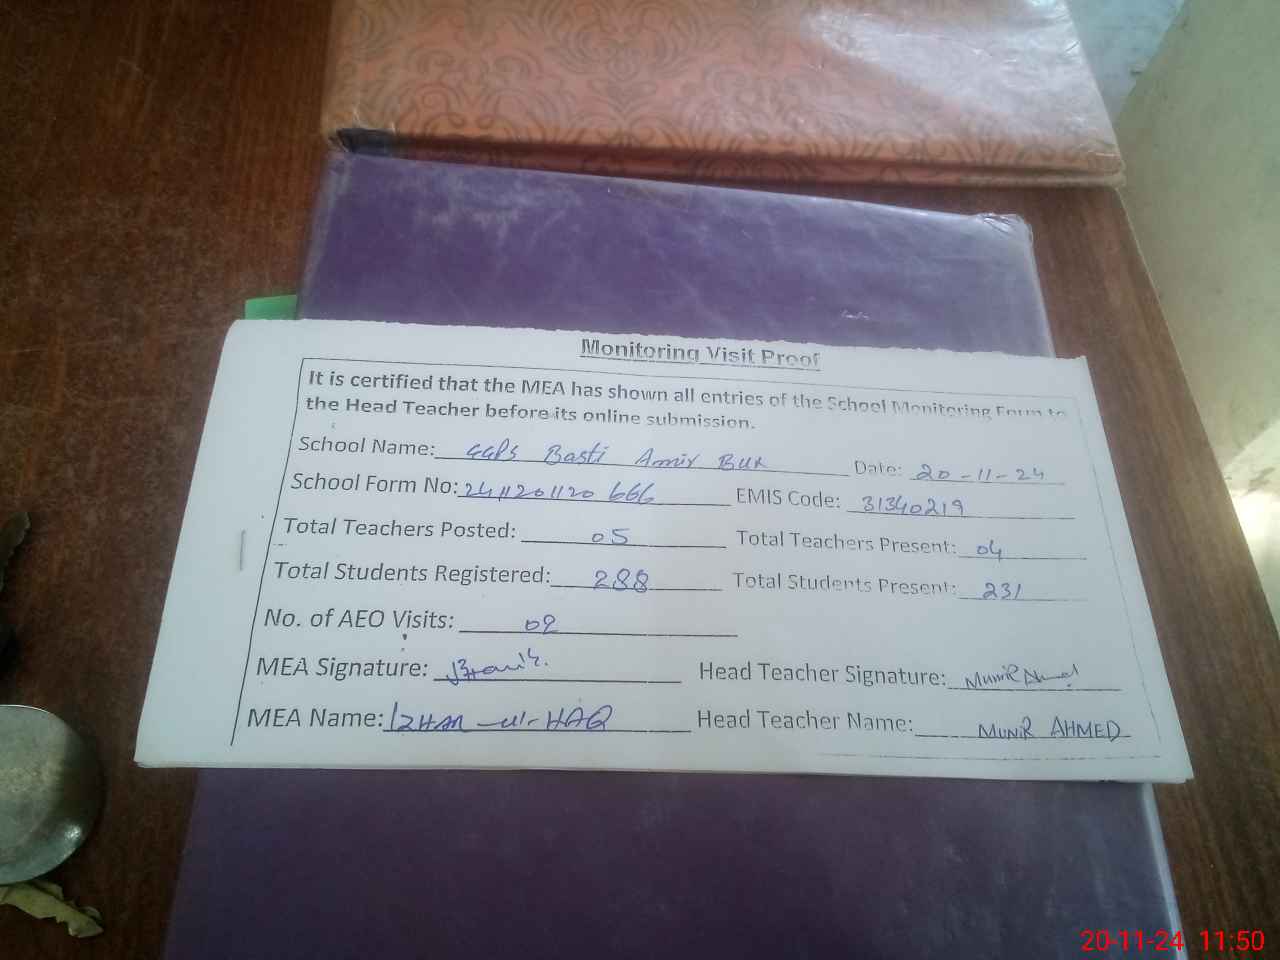 Monitoring Visit Proof
It is certified that the MEA has shown all entries of the School Monitoring Form to
the Head Teacher before its online submission.
School Name: GGPS Basti Amir Bux Date: 20-11-24
School Form No: 2411201120666 EMIS Code: 31340219
Total Teachers Posted: 05 Total Teachers Present: 04
Total Students Registered: 288 Total Students Present: 231
No. of AEO Visits: 02
MEA Signature: Head Teacher Signature: Munir Ahmed
MEA Name: IZHAR-ul-HAQ Head Teacher Name: MUNIR AHMED
20-11-24 11:50